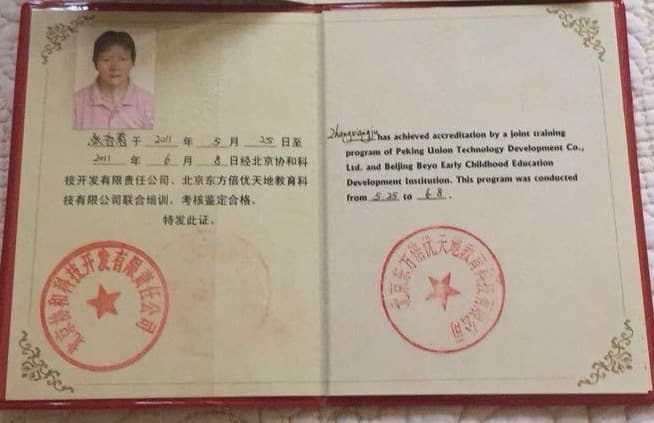 张香菊于 2011 年 5 月 25 日至
2011 年 6 月 8 日经北京协和科
技开发有限责任公司、北京东方倍优天地教育科
技有限公司联合培训、考核鉴定合格。
特发此证。
北京协和科技开发有限责任公司
Zhangxiangju has achieved accreditation by a joint training
program of Peking Union Technology Development Co.,
Ltd. and Beijing Beyo Early Childhood Education
Development Institution. This program was conducted
from 5.25 to 6.8.
北京东方倍优天地教育科技有限公司